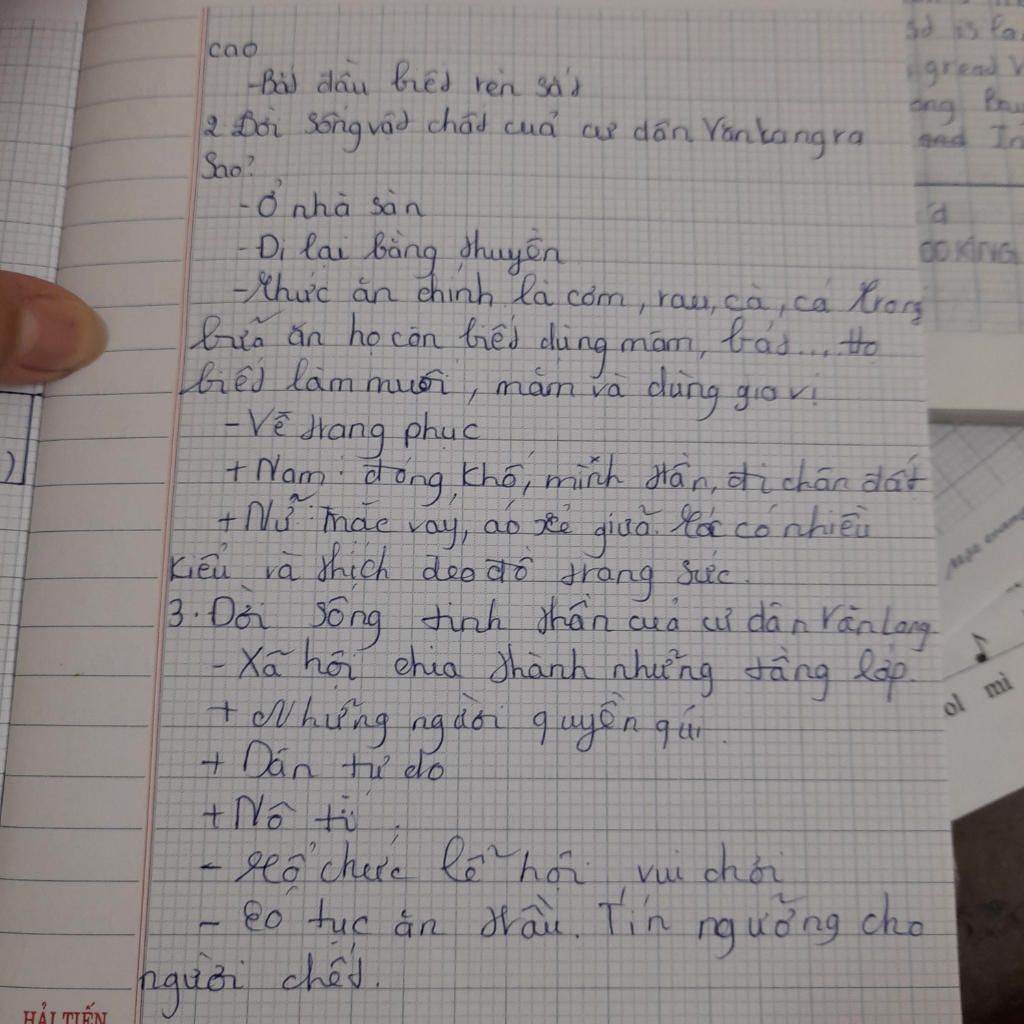 cao
-Bắt đầu biết rèn sắt
2 Đời sống vật chất của cư dân Văn Lang ra
Sao?
- Ở nhà sàn
- Đi lại bằng thuyền
- Thức ăn chính là cơm, rau, cà, cá trong
bữa ăn họ còn biết dùng mâm, bát... Họ
biết làm muối, mắm và dùng gia vị
- Về trang phục
+ Nam: đóng khố, mình trần, đi chân đất
+ Nữ: mặc váy, áo xẻ giữa. tóc có nhiều
kiểu và thích đeo đồ trang sức.
3. Đời sống tinh thần của cư dân Văn Lang
- Xã hội chia thành những tầng lớp.
+ Những người quyền quí.
+ Dân tự do
+ Nô tì.
- Tổ chức lễ hội vui chơi
- Có tục ăn trầu. Tín ngưỡng cho
người chết.
HẢI TIẾN
ol mì